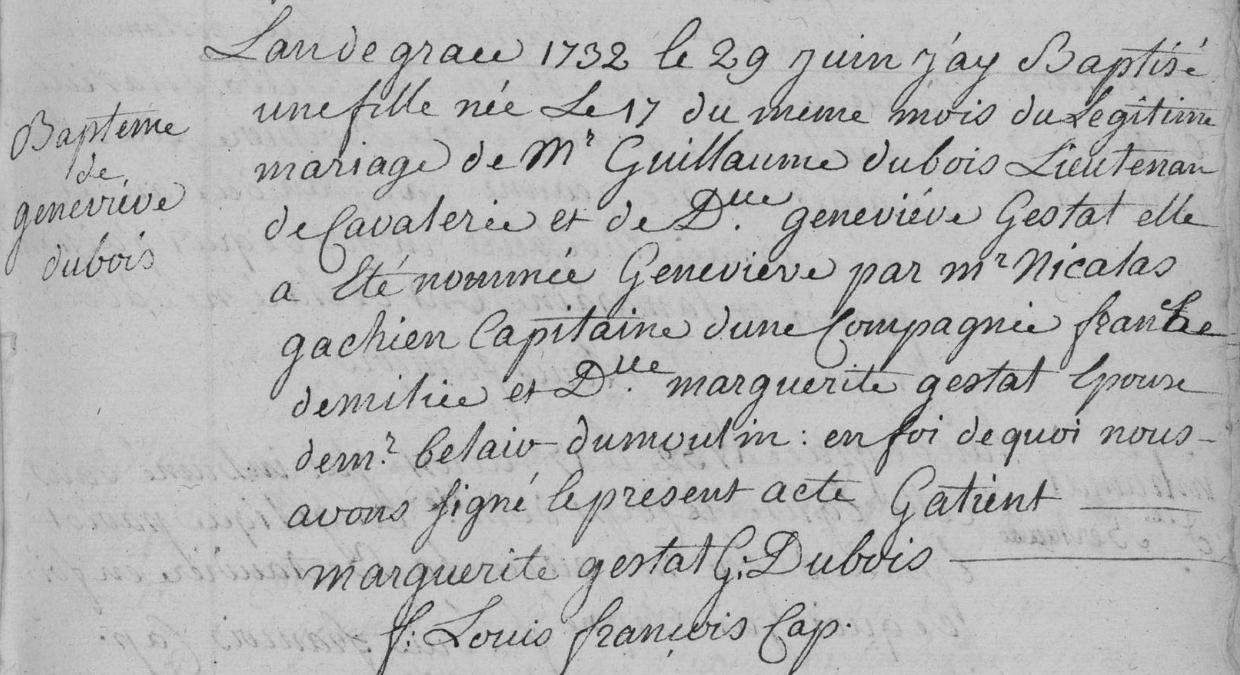 Bapteme
de
geneviéve
dubois
Lan de grace 1732 le 29 juin j'ay Baptisé
une fille née Le 17 du meme mois du Legitime
mariage de Mr Guillaume dubois Lieutenan
de Cavalerie et de Dlle geneviéve Gestat elle
a Eté nommée Genevieve par mr Nicalas
gachien Capitaine dune Compagnie franche
de milice et Dlle marguerite gestat Epouse
de mr. belair dumoulin : en foi de quoi nous
avons signé le present acte Gatient
marguerite gestat G: Dubois
f: Louis françois Cap.